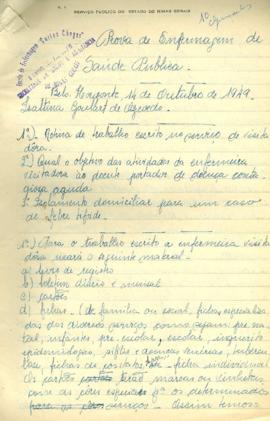 SERVIÇO PÚBLICO DO ESTADO DE MINAS GERAIS
Prova de Enfermagem de
Saúde Publica.
Belo Horizonte, 14 de Outubro de 1949
Goulart de Azevedo.
1º) Norma de trabalho escrito no serviço de visita
dôra.
2º) Qual o objetivo das atividades da enfermeira
visitadora ao doente portador de doença conta
giosa aguda
3º Isolamento domiciliar para um caso
de febre tifoide.
1º) Para o trabalho escrito a enfermeira visita
dôra usará o seguinte material.
a) livro de registro
b) boletim diário e mensal
c) cartões
d) fichas - (de familia ou social, fichas especialisa
das dos diversos serviços como sejam pre na
tal, infantes, pre escolar, escolar, inquerito
epidemiologico, sifilis e doenças venéreas, tubercu
lose, fichas de contatos e ficha individual
Os cartões terão marcas ou dinheiros
para os serviços - Assim temos